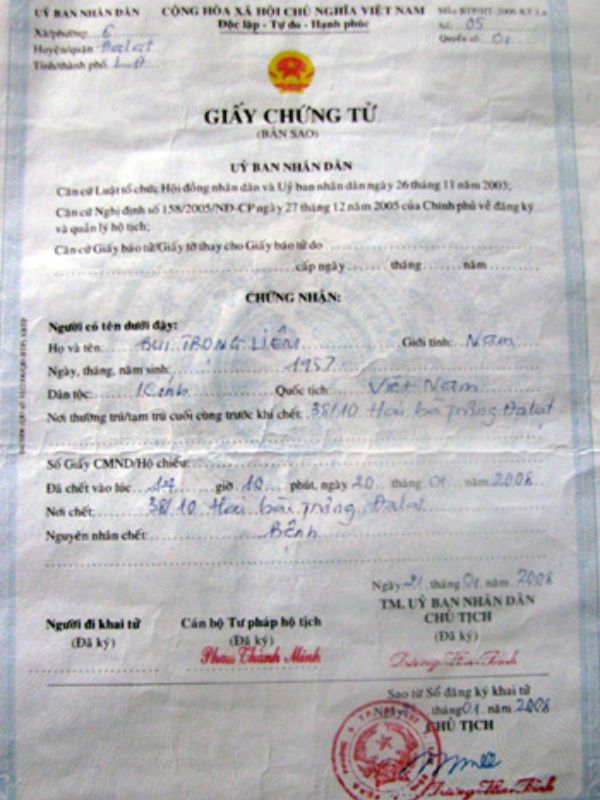 UỶ BAN NHÂN DÂN
CỘNG HÒA XÃ HỘI CHỦ NGHĨA VIỆT NAM
Độc lập - Tự do - Hạnh phúc
Xã/phường: 6
Huyện/quận Đalat
Tỉnh/thành phố LĐ
Số: 05
Quyển số: 01
GIẤY CHỨNG TỬ
(BẢN SAO)
UỶ BAN NHÂN DÂN
Căn cứ Luật tổ chức Hội đồng nhân dân và Uỷ ban nhân dân ngày 26 tháng 11 năm 2003;
Căn cứ Nghị định số 158/2005/NĐ-CP ngày 27 tháng 12 năm 2005 của Chính phủ về đăng ký
và quản lý hộ tịch;
Căn cứ Giấy báo tử/Giấy tờ thay cho Giấy báo tử do
cấp ngày tháng năm
CHỨNG NHẬN:
Người có tên dưới đây:
Họ và tên: BÙI TRỌNG LIÊM Giới tính: Nam
Ngày, tháng, năm sinh: 1957
Dân tộc: Kinh Quốc tịch: Việt Nam
Nơi thường trú/tạm trú cuối cùng trước khi chết: 38/10 Hai bà Trưng Đalat
Số Giấy CMND/Hộ chiếu:
Đã chết vào lúc 17 giờ 10 phút, ngày 20 tháng 01 năm 2008
Nơi chết: 38/10 Hai bà Trưng Đalat
Nguyên nhân chết: Bệnh
Ngày 21 tháng 01 năm 2008
TM. UỶ BAN NHÂN DÂN
CHỦ TỊCH
(Đã ký)
Người đi khai tử
(Đã ký)
Cán bộ Tư pháp hộ tịch
(Đã ký)
Phan Thành Minh
Sao từ Sổ đăng ký khai tử
Ngày 21 tháng 01 năm 2008
CHỦ TỊCH